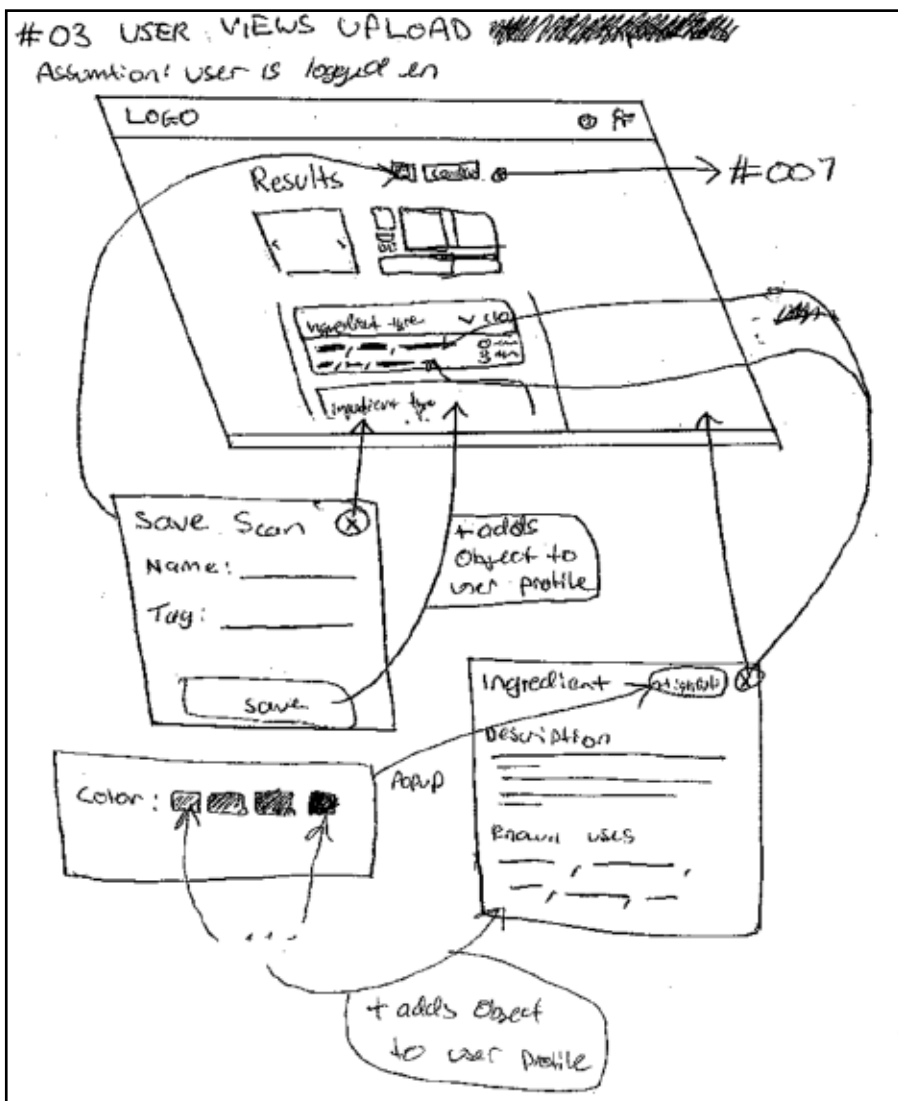 #03 USER VIEWS UPLOAD
Assumtion: user is logged in
LOGO
Results
#007
Ingredient type
Ingredient type
Save Scan
Name:
Tag:
save
+ adds
Object to
user profile
Ingredient
Description
Known uses
Popup
Color:
+ adds Object
to user profile